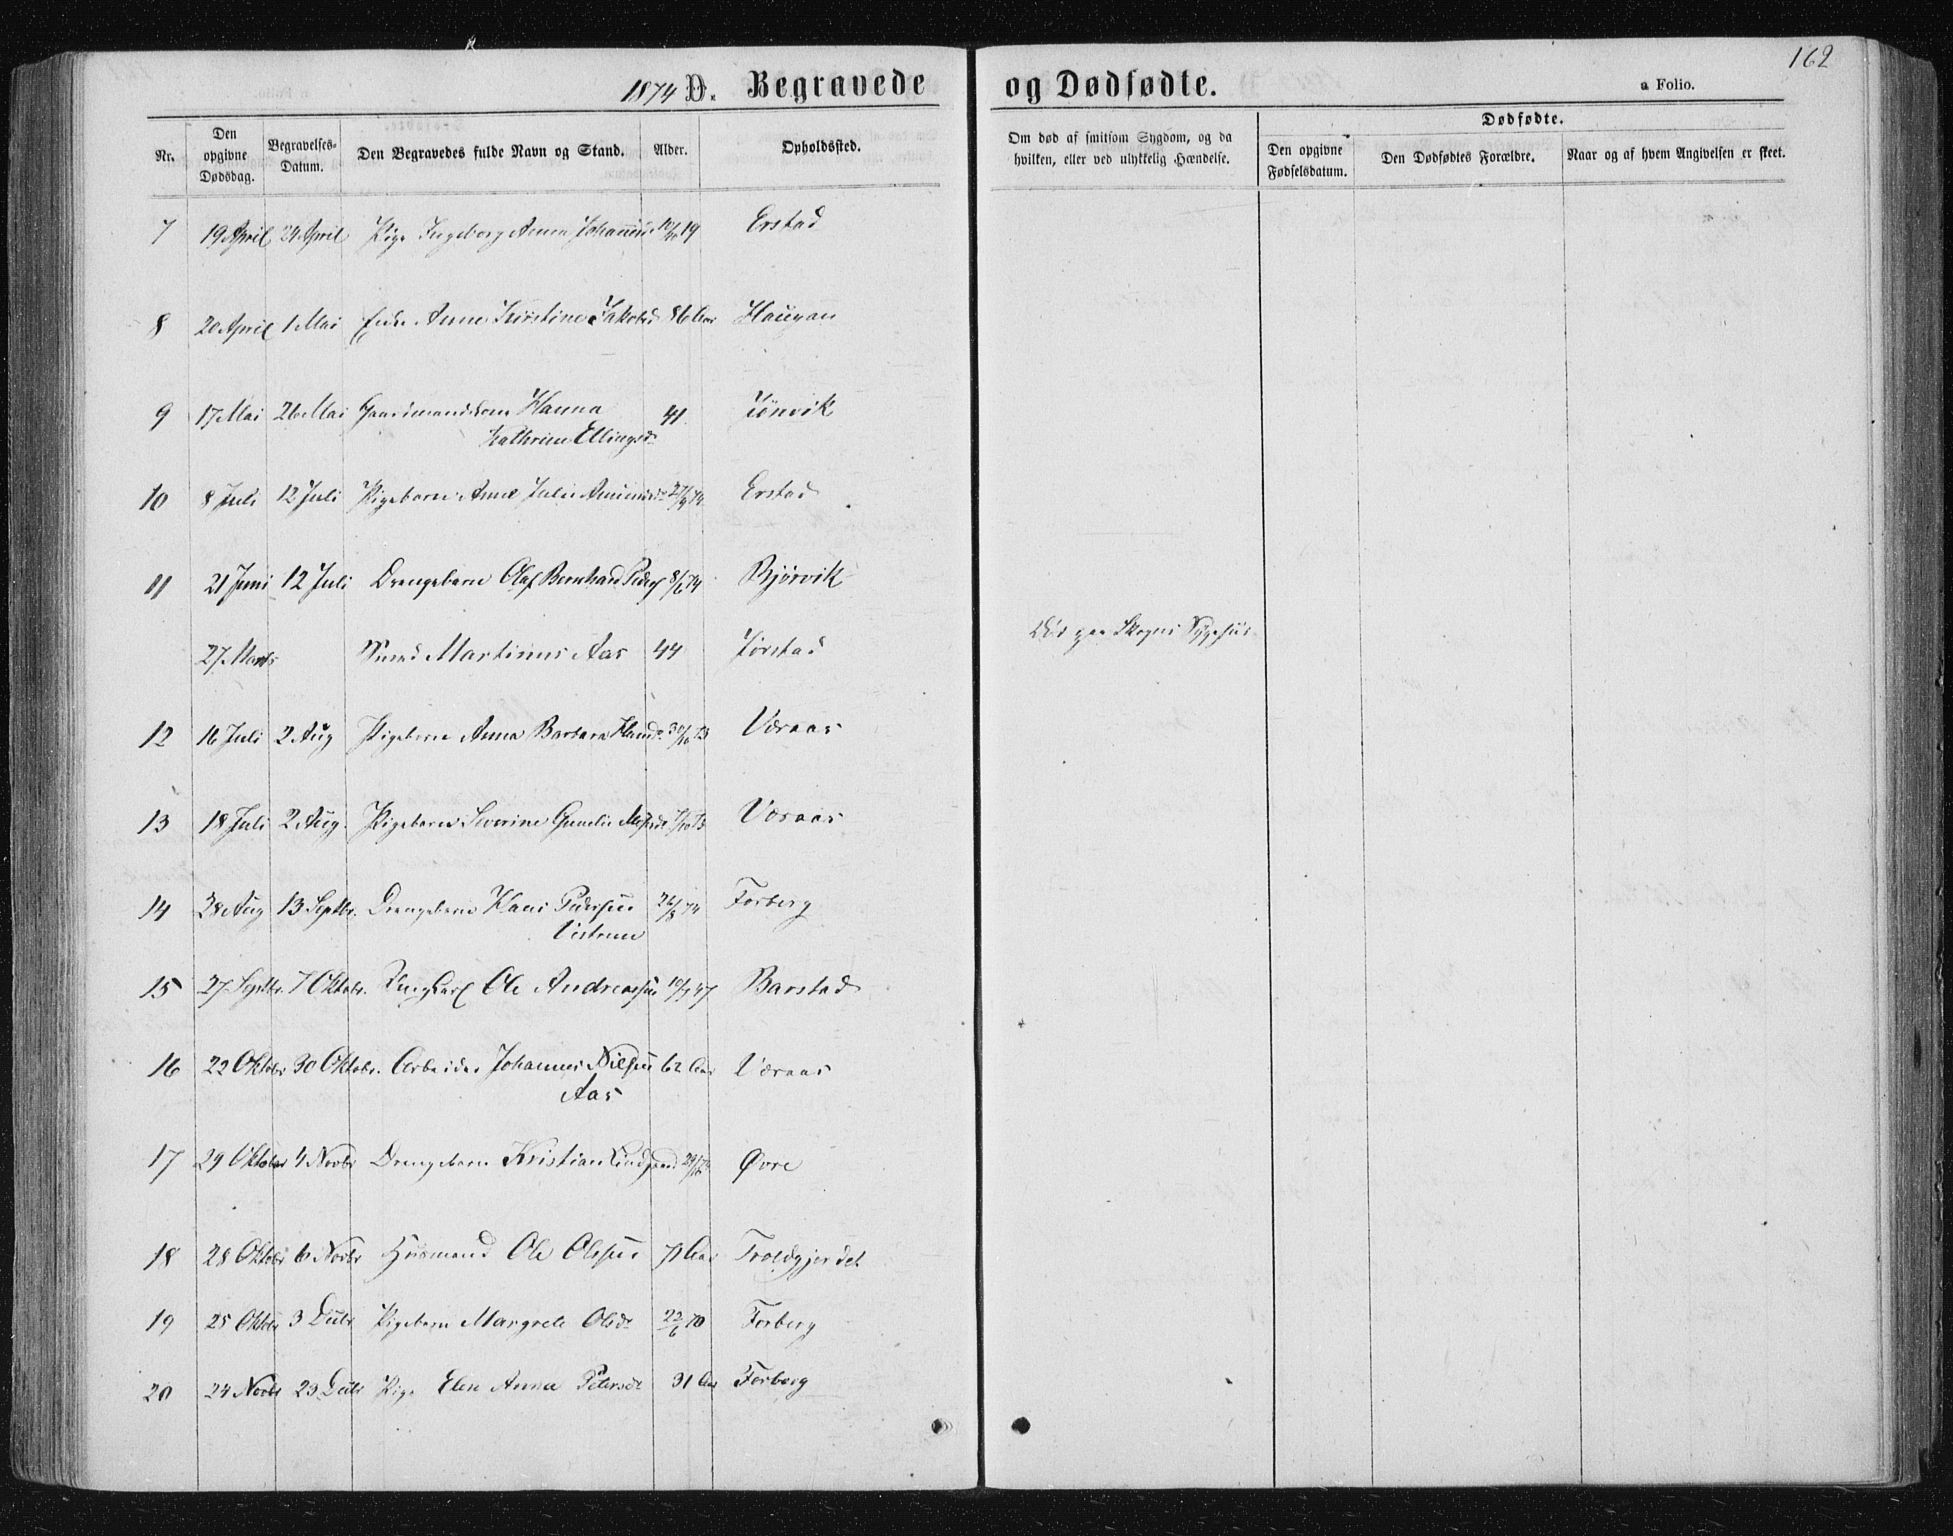 162
1874 D. Begravede og Dødsfødte.
a Folio.
Nr. Den opgivne Dødsdag. Begravelses-Datum. Den Begravedes fulde Navn og Stand. Alder. Opholdssted. Om død af smitsom Sygdom, og da hvilken, eller ved ulykkelig Hændelse. Dødfødte.
Den opgivne Fødselsdatum. Den Dødfødtes Forældre. Naar og af hvem Angivelsen er skeet.
7 19 April 24 April Pige Ingeborg Anna 19 Erstad
8 20 April 1 Mai Anne Kirstine Jakobsd 86 Aar Haugan
9 17 Mai 26 Mai Hanna 41
Kathrine Ellingsd
10 8 Juli 12 Juli Pigebarn Anne Julie 74 Erstad
11 21 Juni 12 Juli Drengebarn Olaf Bernhard Peders 8/6 74 Bjørvik
27 Marts Martinus Aas 44 Død paa Skogns Sygehus
12 16 Juli 2 Aug Pigebarn Anna Barbara Hansd 30/10 73 Væraas
13 18 Juli 2 Aug. Pigebarn Severine 73 Væraas
14 28 Aug 13 Septbr. Drengebarn Hans Pedersen 26/8 74 Forberg
15 27 Septbr. 7 Oktobr. Ungkarl Ole Andreassen 47 Barstad
16 22 Oktobr 30 Oktobr. Arbeider Johannes Nilsen 62 Aar Væraas
Aas
17 29 Oktober 4 Novbr Drengebarn Kristian Øvre
18 28 Oktobr 6 Novbr Husmand Ole Olsen 71 Aar Troldgjerdet
19 25 Oktobr 3 Pigebarn Margrete Olsdt 22/6 70 Forberg
20 24 Novbr 23 Pige Elen Anna Petersdt 31 Aar Forberg